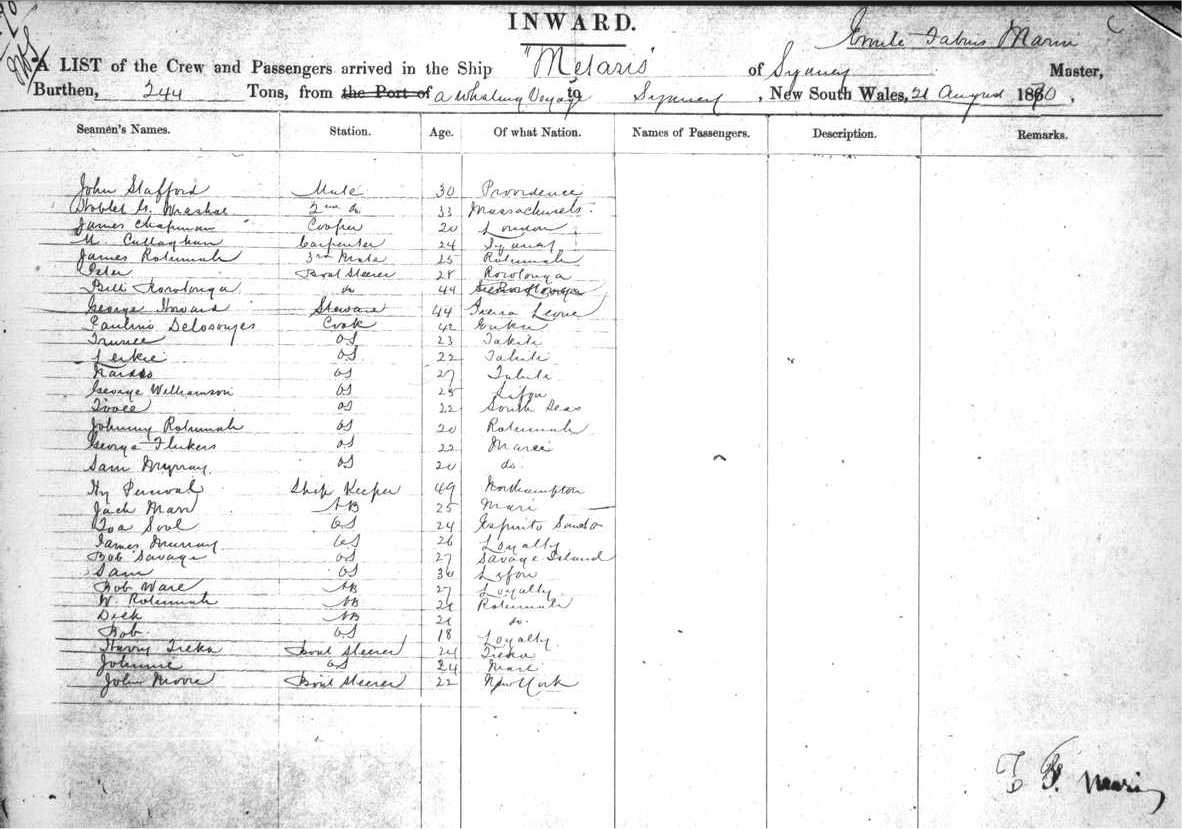 INWARD.
Emile Fabius Marin
A LIST of the Crew and Passengers arrived in the Ship "Metaris" of Sydney Master,
Burthen, 244 Tons, from the Port of a Whaling Voyage to Sydney, New South Wales, 21 August 1880,
Seamen's Names. Station. Age. Of what Nation. Names of Passengers. Description. Remarks.
John Stafford Mate 30 Providence
2nd do 33 Massachusets.
James Chapman Cooper 20 London
M. Cullaghan Carpenter 24 Sydney
James Rotumah 3rd Mate 25 Rotumah
Peter Boat Steerer 28 Rorotonga
Bill Rorotonga do 44
George Howard Steward 44 Sierra Leone
Paulino Cook 42
OS 23 Tahiti
OS 22 Tahiti
OS 27 Tahiti
George Williamson OS 25 Lifou
OS 22 South Seas
Johnny Rotumah OS 20 Rotumah
George Flukers OS 22 Mare
Sam Murray. OS 20 do.
Hy Percival Ship Keeper 49 Northampton
Jack Mare AB 25 Mari
Toa Sool OS 24 Espirito Santo
James Murray OS 26 Loyalty
Bob Savage OS 27 Savage Island
Sam OS 30 Lifou
Bob Ware AB 27 Loyalty
W. Rotumah AB 24 Rotumah
Dick AB 21 do.
Bob. OS 18 Loyalty
Harry Treka Boat Steerer 24 Treka
Johnnie OS 24 Mare
John Moore Boat Steerer 22 New York
E. F. Marin